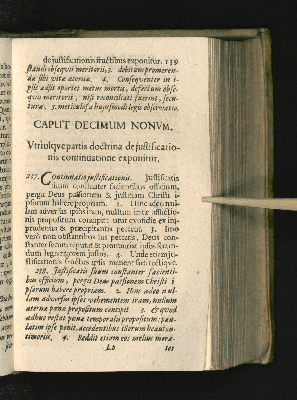 de justificationis fructibus exponitur. 139
standi obsequii meritorii, 3. debitam promeren-
da sibi vitæ æternæ. 4. Consequenter in i-
psis adsit oportet metus mortis, defectum obse-
quii meritorii, nisi reconciliati fuerint, secu-
turæ, 5. meticulosa hujusmodi legis observatio.
CAPUT DECIMUM NONUM.
Utriusque partis doctrina de justificatio-
nis continuatione exponitur.
257. Continuatio justificationis. Justificatis
suum constanter facientibus officium,
pergit Deus passionem & justitiam Christi i-
psorum habere propriam. 2. Hinc adeo nul-
lum adversus ipsos iram, nullum iræ afflictio-
nis propositum concipit: utut quotidie ex im-
prudentia & præcipitantia peccent. 3. Imo
vero non obstantibus his peccatis, Deus con-
stanter eos reputat & pronuntiat ipsos secun-
dum legis rigorem justos. 4. Unde etiam ju-
stificationis fructus ipsis manent sarti tectique.
258. Justificatis suum constanter facienti-
bus officium, pergit Deus passionem Christi i-
psorum habere propriam. 2. Hinc adeo nul-
lam adversus ipsos vehementem iram, nullum
æternæ pœnæ propositum concipit 3. Et quod
adhuc restat pœnæ temporalis propositum; pau-
latim ipse ponit, accedentibus illorum beauton-
timoriis, 4. Reddit etiam eos melius mora-
tos